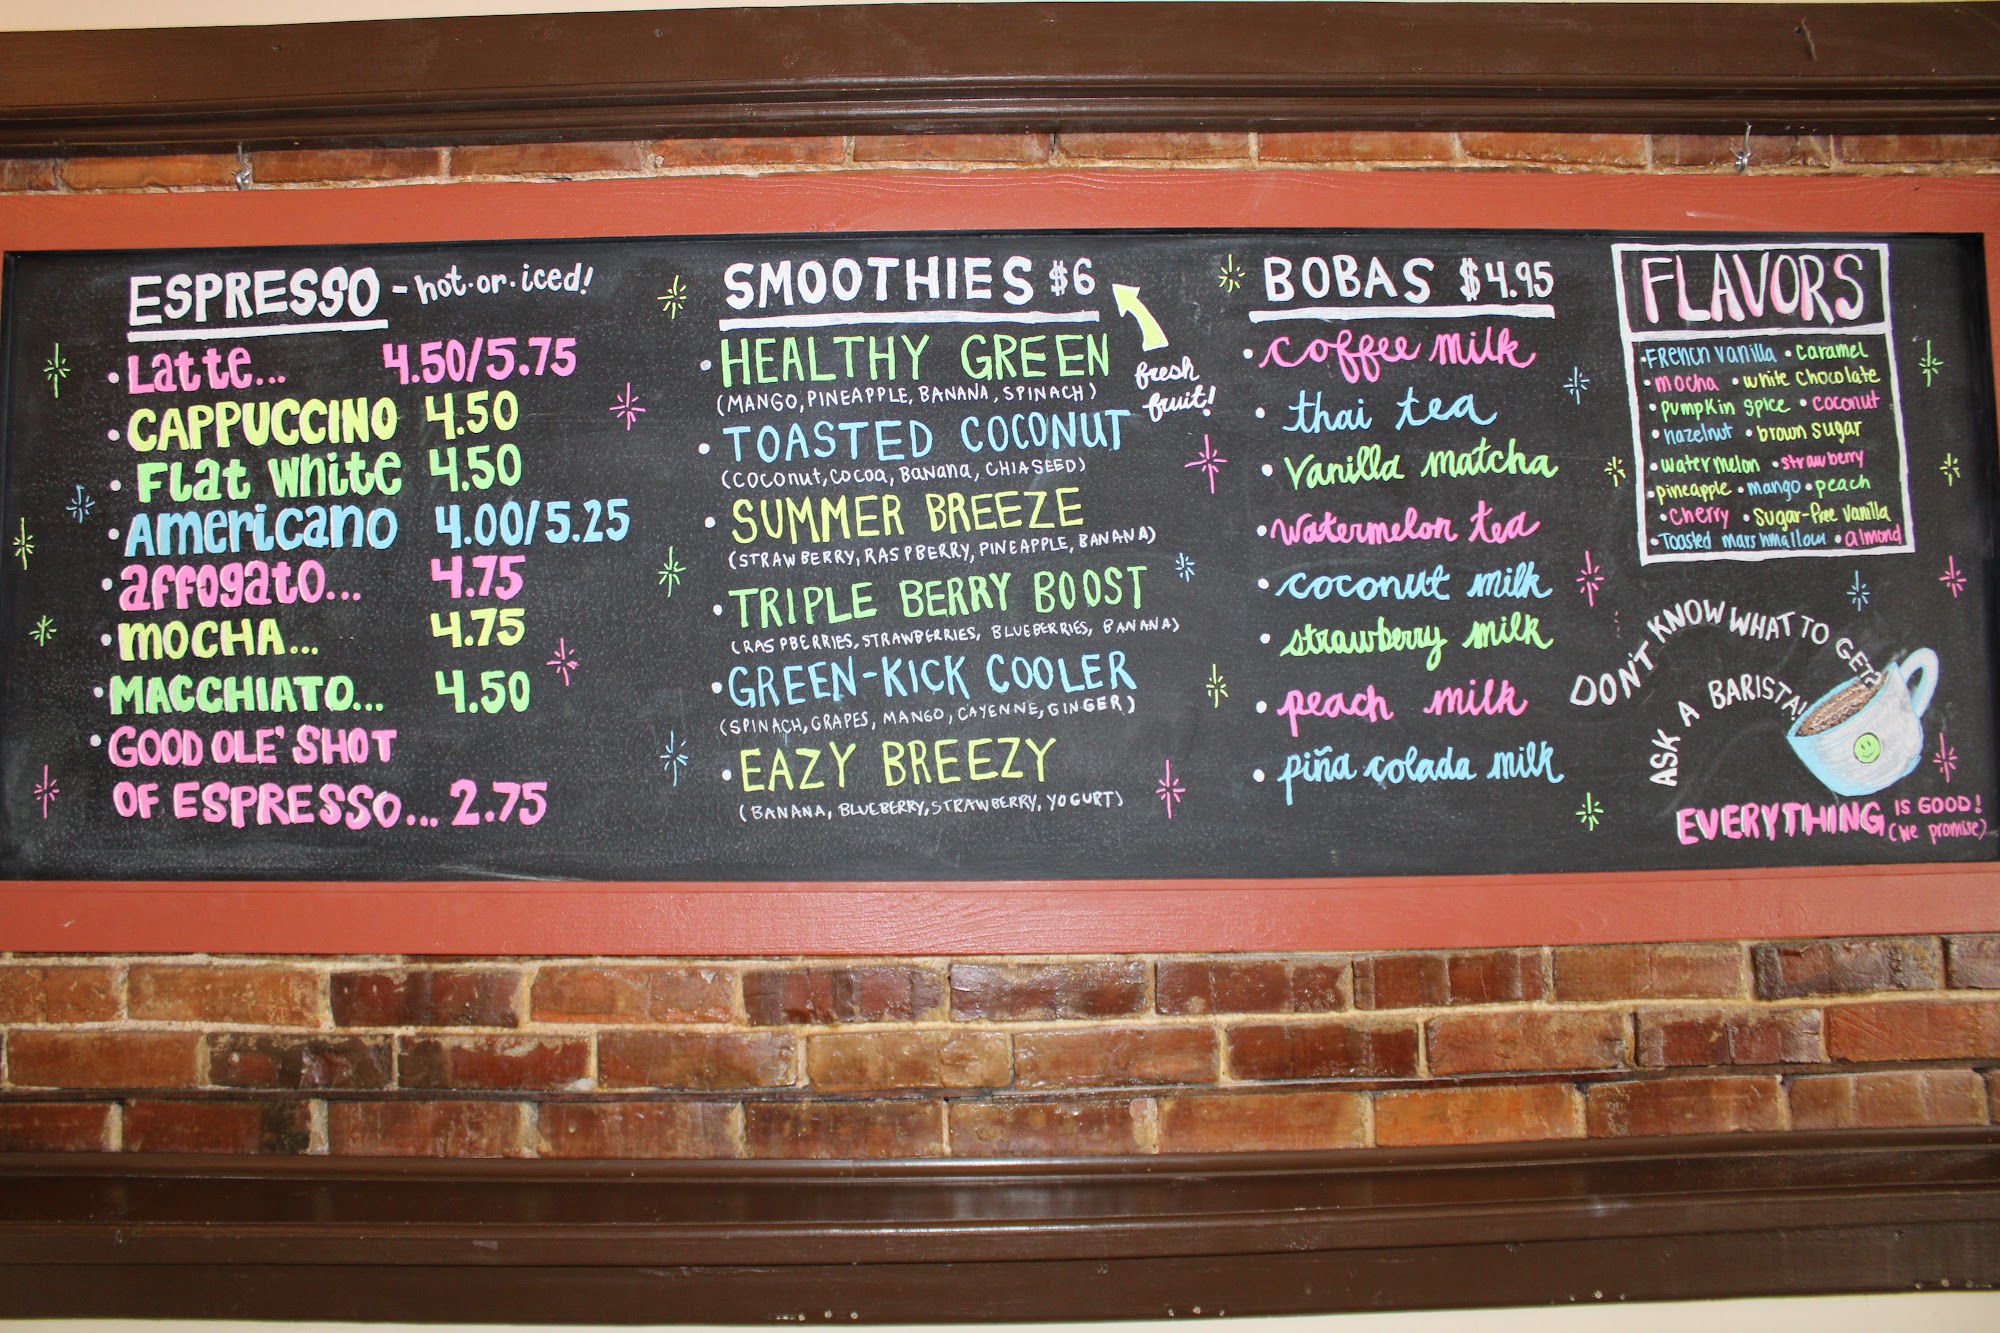 ESPRESSO - hot.or.iced!
• Latte... 4.50/5.75
• CAPPUCCINO 4.50
• Flat White 4.50
• Americano 4.00/5.25
• affogato... 4.75
• MOCHA... 4.75
• MACCHIATO... 4.50
• GOOD OLE' SHOT
OF ESPRESSO... 2.75
SMOOTHIES $6
fresh
fruit!
• HEALTHY GREEN
(MANGO, PINEAPPLE, BANANA, SPINACH)
• TOASTED COCONUT
(COCONUT, COCOA, BANANA, CHIASEED)
• SUMMER BREEZE
(STRAWBERRY, RASPBERRY, PINEAPPLE, BANANA)
• TRIPLE BERRY BOOST
(RASPBERRIES, STRAWBERRIES, BLUEBERRIES, BANANA)
• GREEN-KICK COOLER
(SPINACH, GRAPES, MANGO, CAYENNE, GINGER)
• EAZY BREEZY
(BANANA, BLUEBERRY, STRAWBERRY, YOGURT)
BOBAS $4.95
• coffee milk
• thai tea
• Vanilla matcha
• watermelon tea
• coconut milk
• strawberry milk
• peach milk
• piña colada milk
FLAVORS
• French vanilla • caramel
• mocha • white chocolate
• pumpkin spice • coconut
• hazelnut • brown sugar
• watermelon • strawberry
• pineapple • mango • peach
• cherry • sugar-free vanilla
• Toasted marshmallow • almond
DON'T KNOW WHAT TO GET?
ASK A BARISTA!
EVERYTHING IS GOOD!
(we promise)